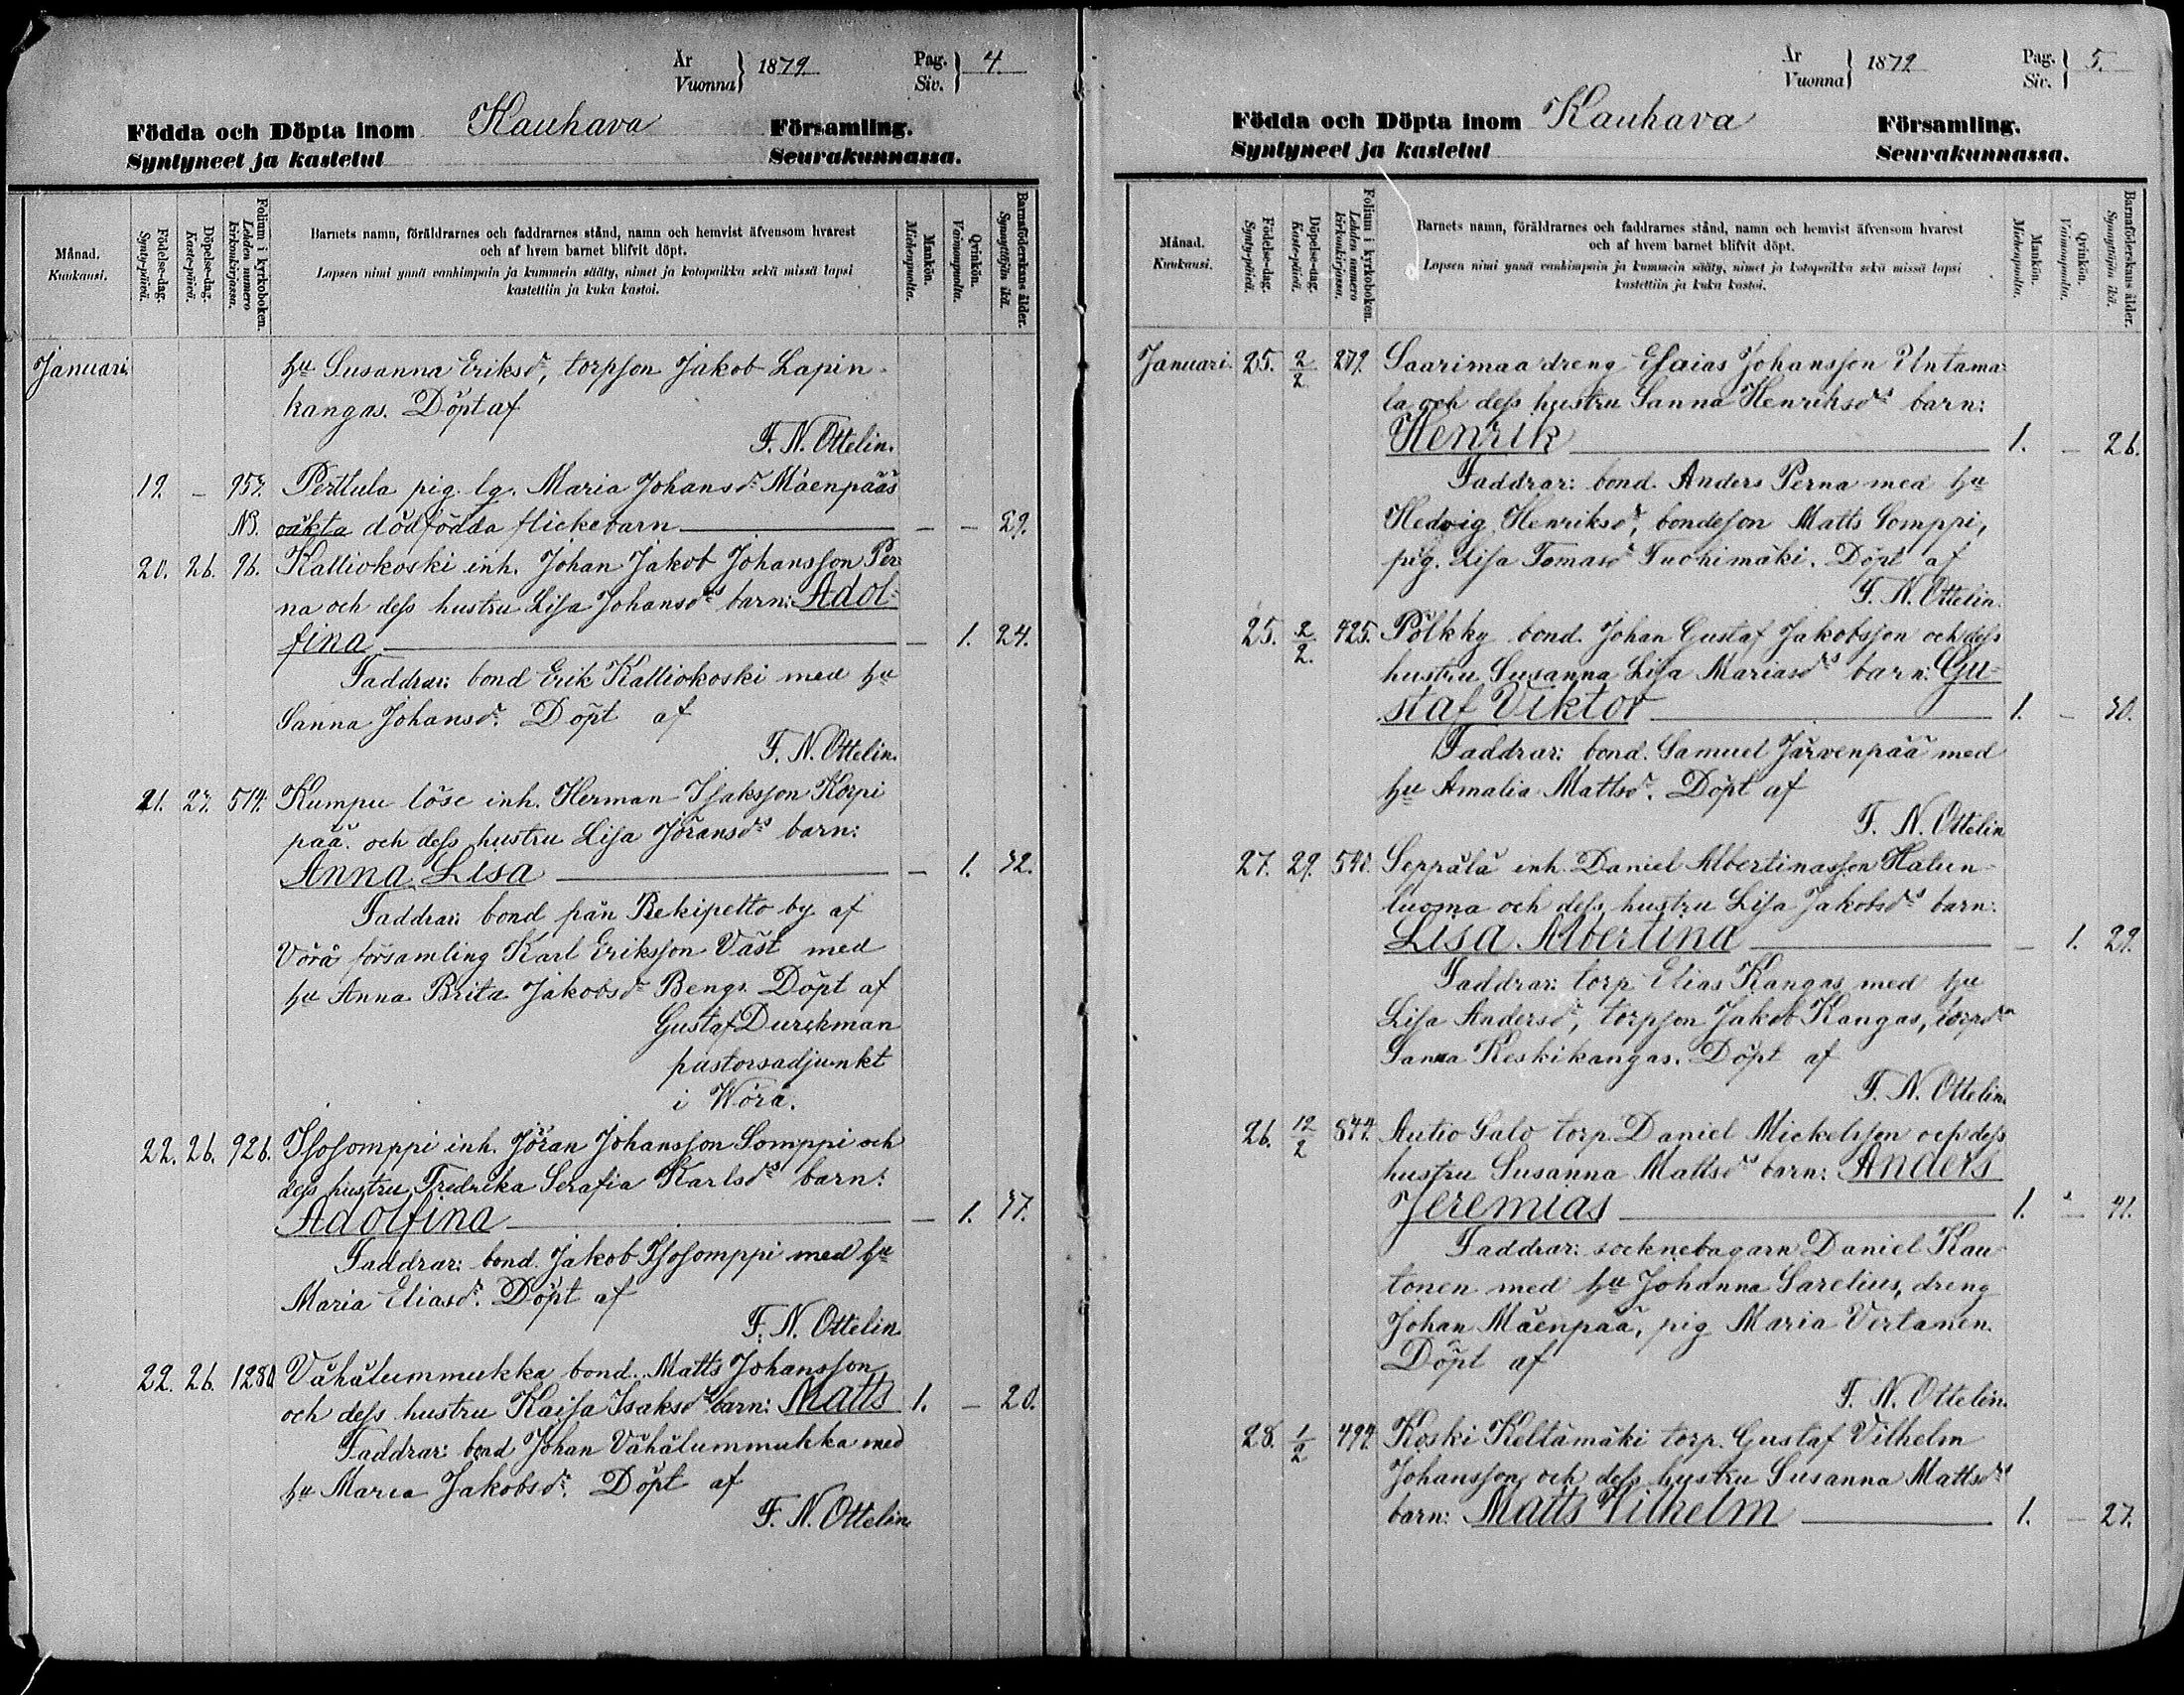 År
Vuonna } 1879. Pag.
Siv. } 4.
Födda och Döpta inom Kauhava Församling.
Syntyneet ja kastetut Seurakunnassa.
Månad.
Kuukausi.
Födelse-dag.
Synty-päivä.
Döpelse-dag.
Kaste-päivä.
Folium i kyrkoboken.
Lehden numero
kirkonkirjassa.
Barnets namn, föräldrarnes och faddrarnes stånd, namn och hemvist äfvensom hvarest
och af hvem barnet blifvit döpt.
Lapsen nimi ynnä vanhimpain ja kummein sääty, nimet ja kotopaikka sekä missä lapsi
kastettiin ja kuka kastoi.
Mankön.
Miehenpuolta.
Qvinkön.
Vaimonpuolta.
Barnaföderskans ålder.
Synnyttäjän ikä.
Januari hu Susanna Eriksdr, torpson Jakob Lapin-
kangas. Döpt af
F. N. Ottelin.
19. – 957. Perttula pig. lg. Maria Johansdr Mäenpääs
NB. oäkta dödfödda flickebarn — – – 29.
20. 26. 96. Kalliokoski inh. Johan Jakob Johansson Per-
na och dess hustru Lisa Johansdrs barn: Adol-
fina — – 1. 24.
Faddrar: bond Erik Kalliokoski med hu
Sanna Johansdr. Döpt af
F. N. Ottelin.
21. 27. 514. Kumpu löse inh. Herman Isaksson Korpi
pää och dess hustru Lisa Jöransdrs barn:
Anna Lisa — – 1. 32.
Faddrar: bond från Rekipelto by af
Vörå församling Karl Eriksson Väst med
hu Anna Brita Jakobsdr Bengs. Döpt af
Gustaf Durckman
pastorsadjunkt
i Wörå.
22. 26. 926. Isosomppi inh. Jöran Johansson Somppi och
dess hustru Fredrika Serafia Karlsdrs barn:
Adolfina — – 1. 37.
Faddrar: bond. Jakob Isosomppi med hu
Maria Eliasdr. Döpt af
F. N. Ottelin
22. 26. 1280 Vähälummukka bond. Matts Johansson
och dess hustru Kaisa Isaksdrs barn: Matts 1. – 20.
Faddrar: bond Johan Vähälummukka med
hu Maria Jakobsdr. Döpt af
F. N. Ottelin.
År
Vuonna } 1879 Pag.
Siv. } 5.
Födda och Döpta inom Kauhava Församling.
Syntyneet ja kastetut Seurakunnassa.
Månad.
Kuukausi.
Födelse-dag.
Synty-päivä.
Döpelse-dag.
Kaste-päivä.
Folium i kyrkoboken.
Lehden numero
kirkonkirjassa.
Barnets namn, föräldrarnes och faddrarnes stånd, namn och hemvist äfvensom hvarest
och af hvem barnet blifvit döpt.
Lapsen nimi ynnä vanhimpain ja kummein sääty, nimet ja kotopaikka sekä missä lapsi
kastettiin ja kuka kastoi.
Mankön.
Miehenpuolta.
Qvinkön.
Vaimonpuolta.
Barnaföderskans ålder.
Synnyttäjän ikä.
Januari. 25. 2/2 279. Saarimaa dreng Esaias Johansson Untama-
la och dess hustru Sanna Henriksdrs barn:
Henrik — 1. – 26.
Faddrar: bond. Anders Perna med hu
Hedvig Henriksdr, bondeson Matts Somppi,
pig. Lisa Tomasdr Tuohimäki. Döpt af
F. N. Ottelin.
25. 2/2. 425. Pölkky bond. Johan Gustaf Jakobsson och dess
hustru Susanna Lisa Mariasdrs barn: Gu-
staf Viktor — 1. – 30.
Faddrar: bond. Samuel Järvenpää med
hu Amalia Mattsdr. Döpt af
F. N. Ottelin
27. 29. 540. Seppälä inh. Daniel Albertinasson Hatun-
luoma och dess hustru Lisa Jakobsdrs barn:
Lisa Albertina — – 1. 29.
Faddrar: torp Elias Kangas med hu
Lisa Andersdr, torpson Jakob Kangas, torpdrn
Sanna Keskikangas. Döpt af
F. N. Ottelin.
26. 12/2 844. Autio Salo torp. Daniel Mickelsson och dess
hustru Susanna Mattsdrs barn: Anders
Jeremias — 1. – 41.
Faddrar: socknebagarn Daniel Kau-
tonen med hu Johanna Sarelius, dreng
Johan Mäenpää, pig Maria Vertanen.
Döpt af
F. N. Ottelin.
28. 1/2 494. Koski Keltämäki torp. Gustaf Vilhelm
Johansson och dess hustru Susanna Mattsdrs
barn: Matts Vilhelm — 1. – 27.